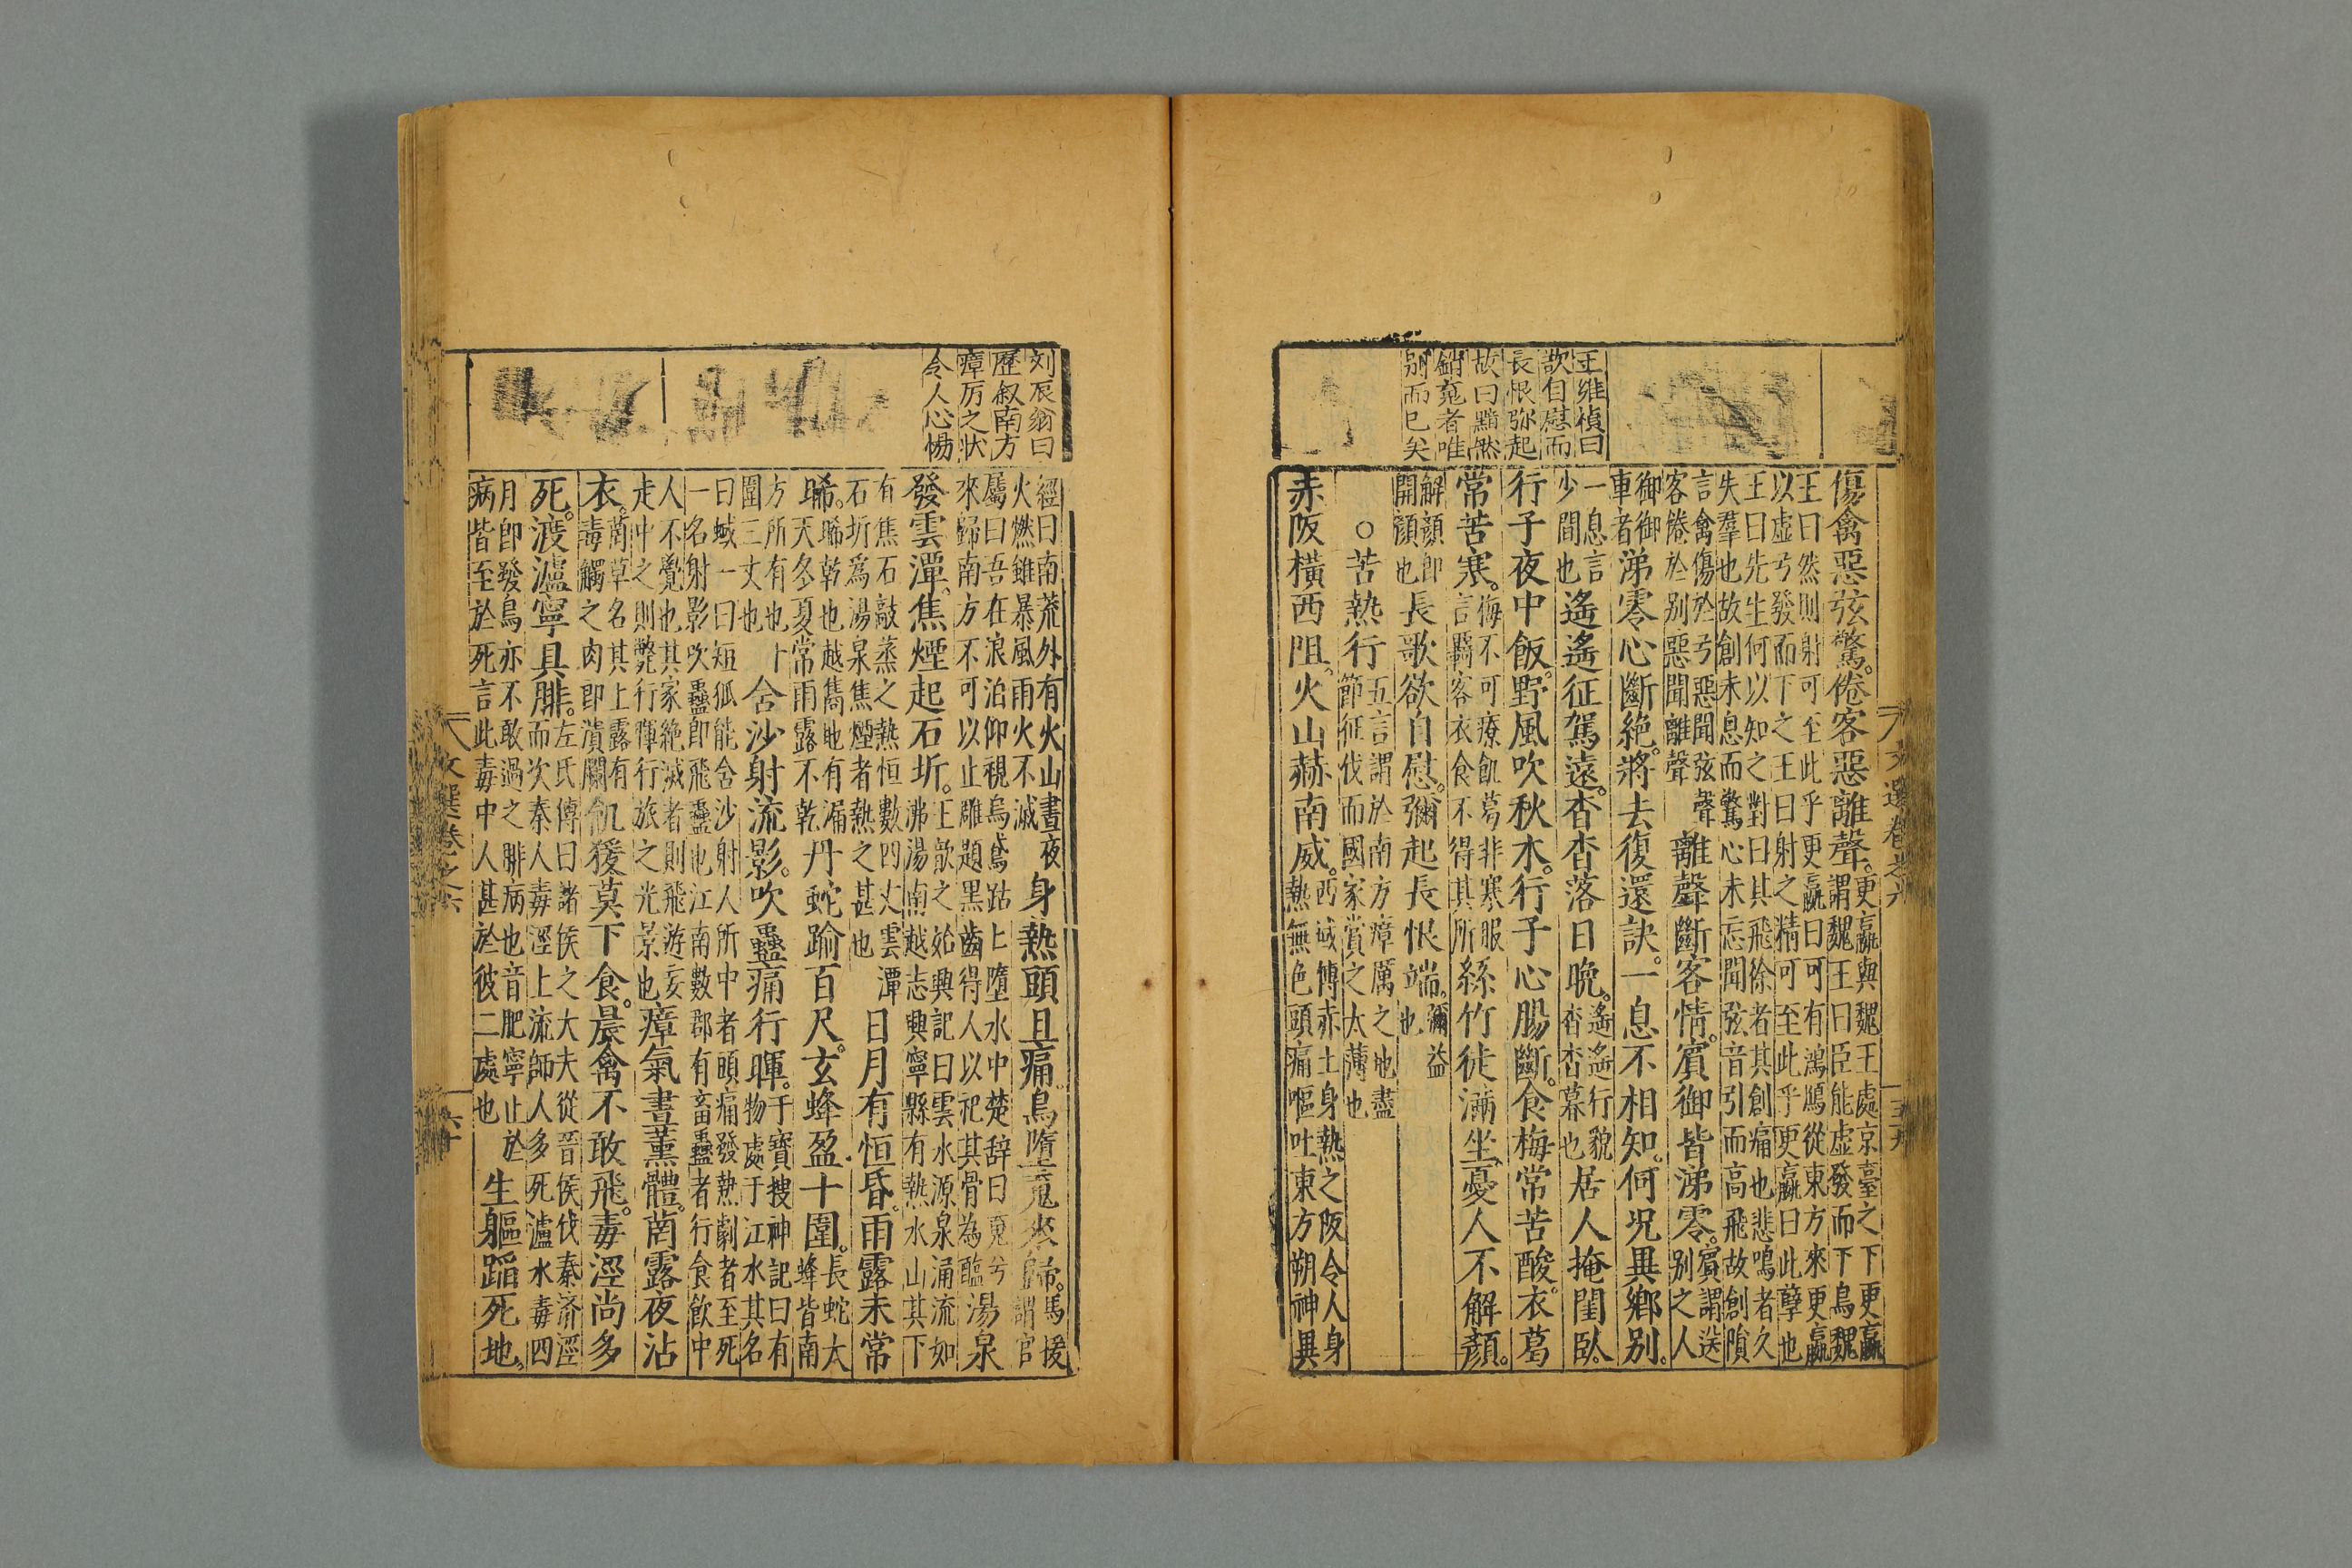 王維楨曰
欲自慰而
長恨弥起
故曰黯然
銷䰟者唯
別而已矣
傷禽惡弦驚。倦客惡離聲。更羸與魏王處京臺之下更羸
謂魏王曰臣能虛發而下鳥魏
王曰然則射可至此乎更羸曰可有鴻鴈從東方來更羸
以虛弓發而下之王曰射之精可至此乎更羸曰此孽也
王曰先生何以知之對曰其飛徐者其創痛也悲鳴者久
失羣也故創未息而驚心未忘聞弦音引而高飛故創隕
言禽傷於弓惡聞弦聲
客倦於別惡聞離聲
離聲斷客情。賓御皆涕零。賓謂送
別之人
御御
車者
涕零心斷絶。將去復還訣。一息不相知。何况異鄉別。
一息言
少間也
遙遙征駕遠。杳杳落日晩。遙遙行貌
杳杳暮也
居人掩閨臥。
行子夜中飯。野風吹秋木。行子心腸斷。食梅常苦酸。衣葛
常苦寒。梅不可療飢葛非寒服
言羇客衣食不得其所
絲竹徒滿坐。憂人不解顏。
解顏即
開顏也
長歌欲自慰。彌起長恨端。彌益
也
○苦熱行
五言謂於南方瘴厲之地盡
節征伐而國家賞之太薄也
赤阪橫西阻。火山赫南威。西域傳赤土身熱之阪令人身
熱無色頭痛嘔吐東方朔神異
文選卷之六
五十九
刘辰翁曰
歷叙南方
瘴厉之状
令人心惕
經曰南荒外有火山晝夜
火燃雖暴風雨火不滅
身熱頭且痛。鳥墮䰟來歸。馬援
謂官
屬曰吾在浪泊仰視烏鳶跕上墮水中楚辞曰䰟兮
來歸南方不可以止雕題黑齒得人以祀其骨為醢
湯泉
發雲潭。焦煙起石圻。王歆之始興記曰雲水源泉涌流如
沸湯南越志興寧縣有熱水山其下
有焦石敲蒸之熱恒數四丈雲潭
石圻爲湯泉焦煙者熱之甚也
日月有恒昏。雨露未常
晞。晞乾也越嶲地有漏
天冬夏常雨露不乾
丹蛇踰百尺。玄蜂盈十圍。長蛇大
蜂皆南
方所有也十
圍三丈也
含沙射流影。吹蠱痛行暉。于寶搜神記曰有
物處于江水其名
曰蜮一曰短狐能含沙射人所中者頭痛發熱劇者至死
一名射影吹蠱即飛蠱也江南數郡有畜蠱者行食飲中
人不覺也其家絶滅者則飛游妄
走中之則斃行暉行旅之光景也
瘴氣晝薰體。䓘露夜沾
衣。䓘草名其上露有
毒觸之肉即潰爛
飢猨莫下食。晨禽不敢飛。毒涇尚多
死。渡瀘寧具腓。左氏傳曰諸侯之大夫從晉侯伐秦济涇
而次秦人毒涇上流師人多死瀘水毒四
月即發鳥亦不敢過之腓病也音肥寧止於
病皆至於死言此毒中人甚於彼二處也
生軀蹈死地。
文選卷之六
六十